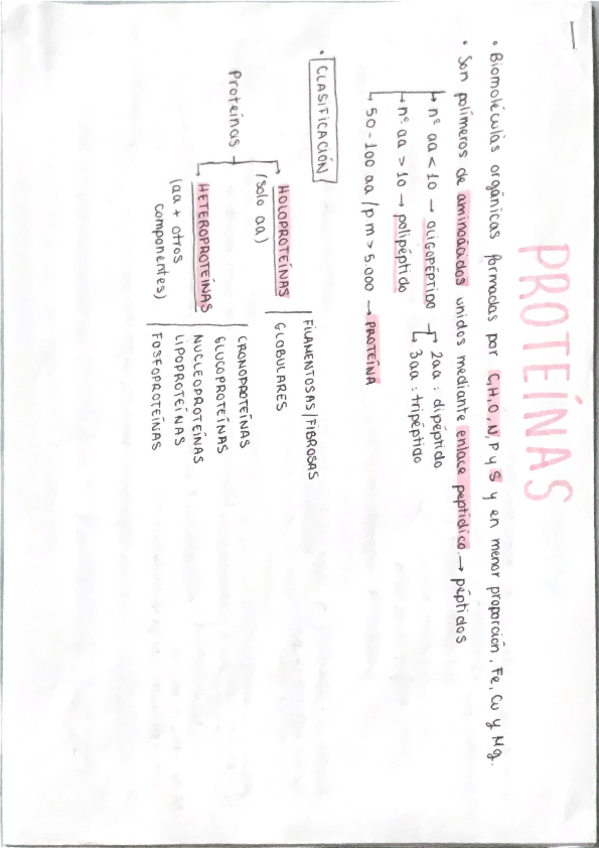 PROTEÍNAS
• Biomoléculas orgánicas formadas por C,H,O,N,P y S y en menor proporción, Fe, Cu y Mg.
• Son polímeros de aminoácidos unidos mediante enlace peptídico → péptidos
nº aa < 10 → OLIGOPÉPTIDO → 2aa: dipéptido
3aa: tripéptido
nº aa > 10 → polipéptido
50-100 aa / pm > 5.000 → PROTEÍNA
• CLASIFICACIÓN
Proteínas
HOLOPROTEÍNAS
(solo aa)
FILAMENTOSAS/FIBROSAS
GLOBULARES
HETEROPROTEÍNAS
(aa + otros
componentes)
CRONOPROTEÍNAS
GLUCOPROTEÍNAS
NUCLEOPROTEÍNAS
LIPOPROTEÍNAS
FOSFOPROTEÍNAS